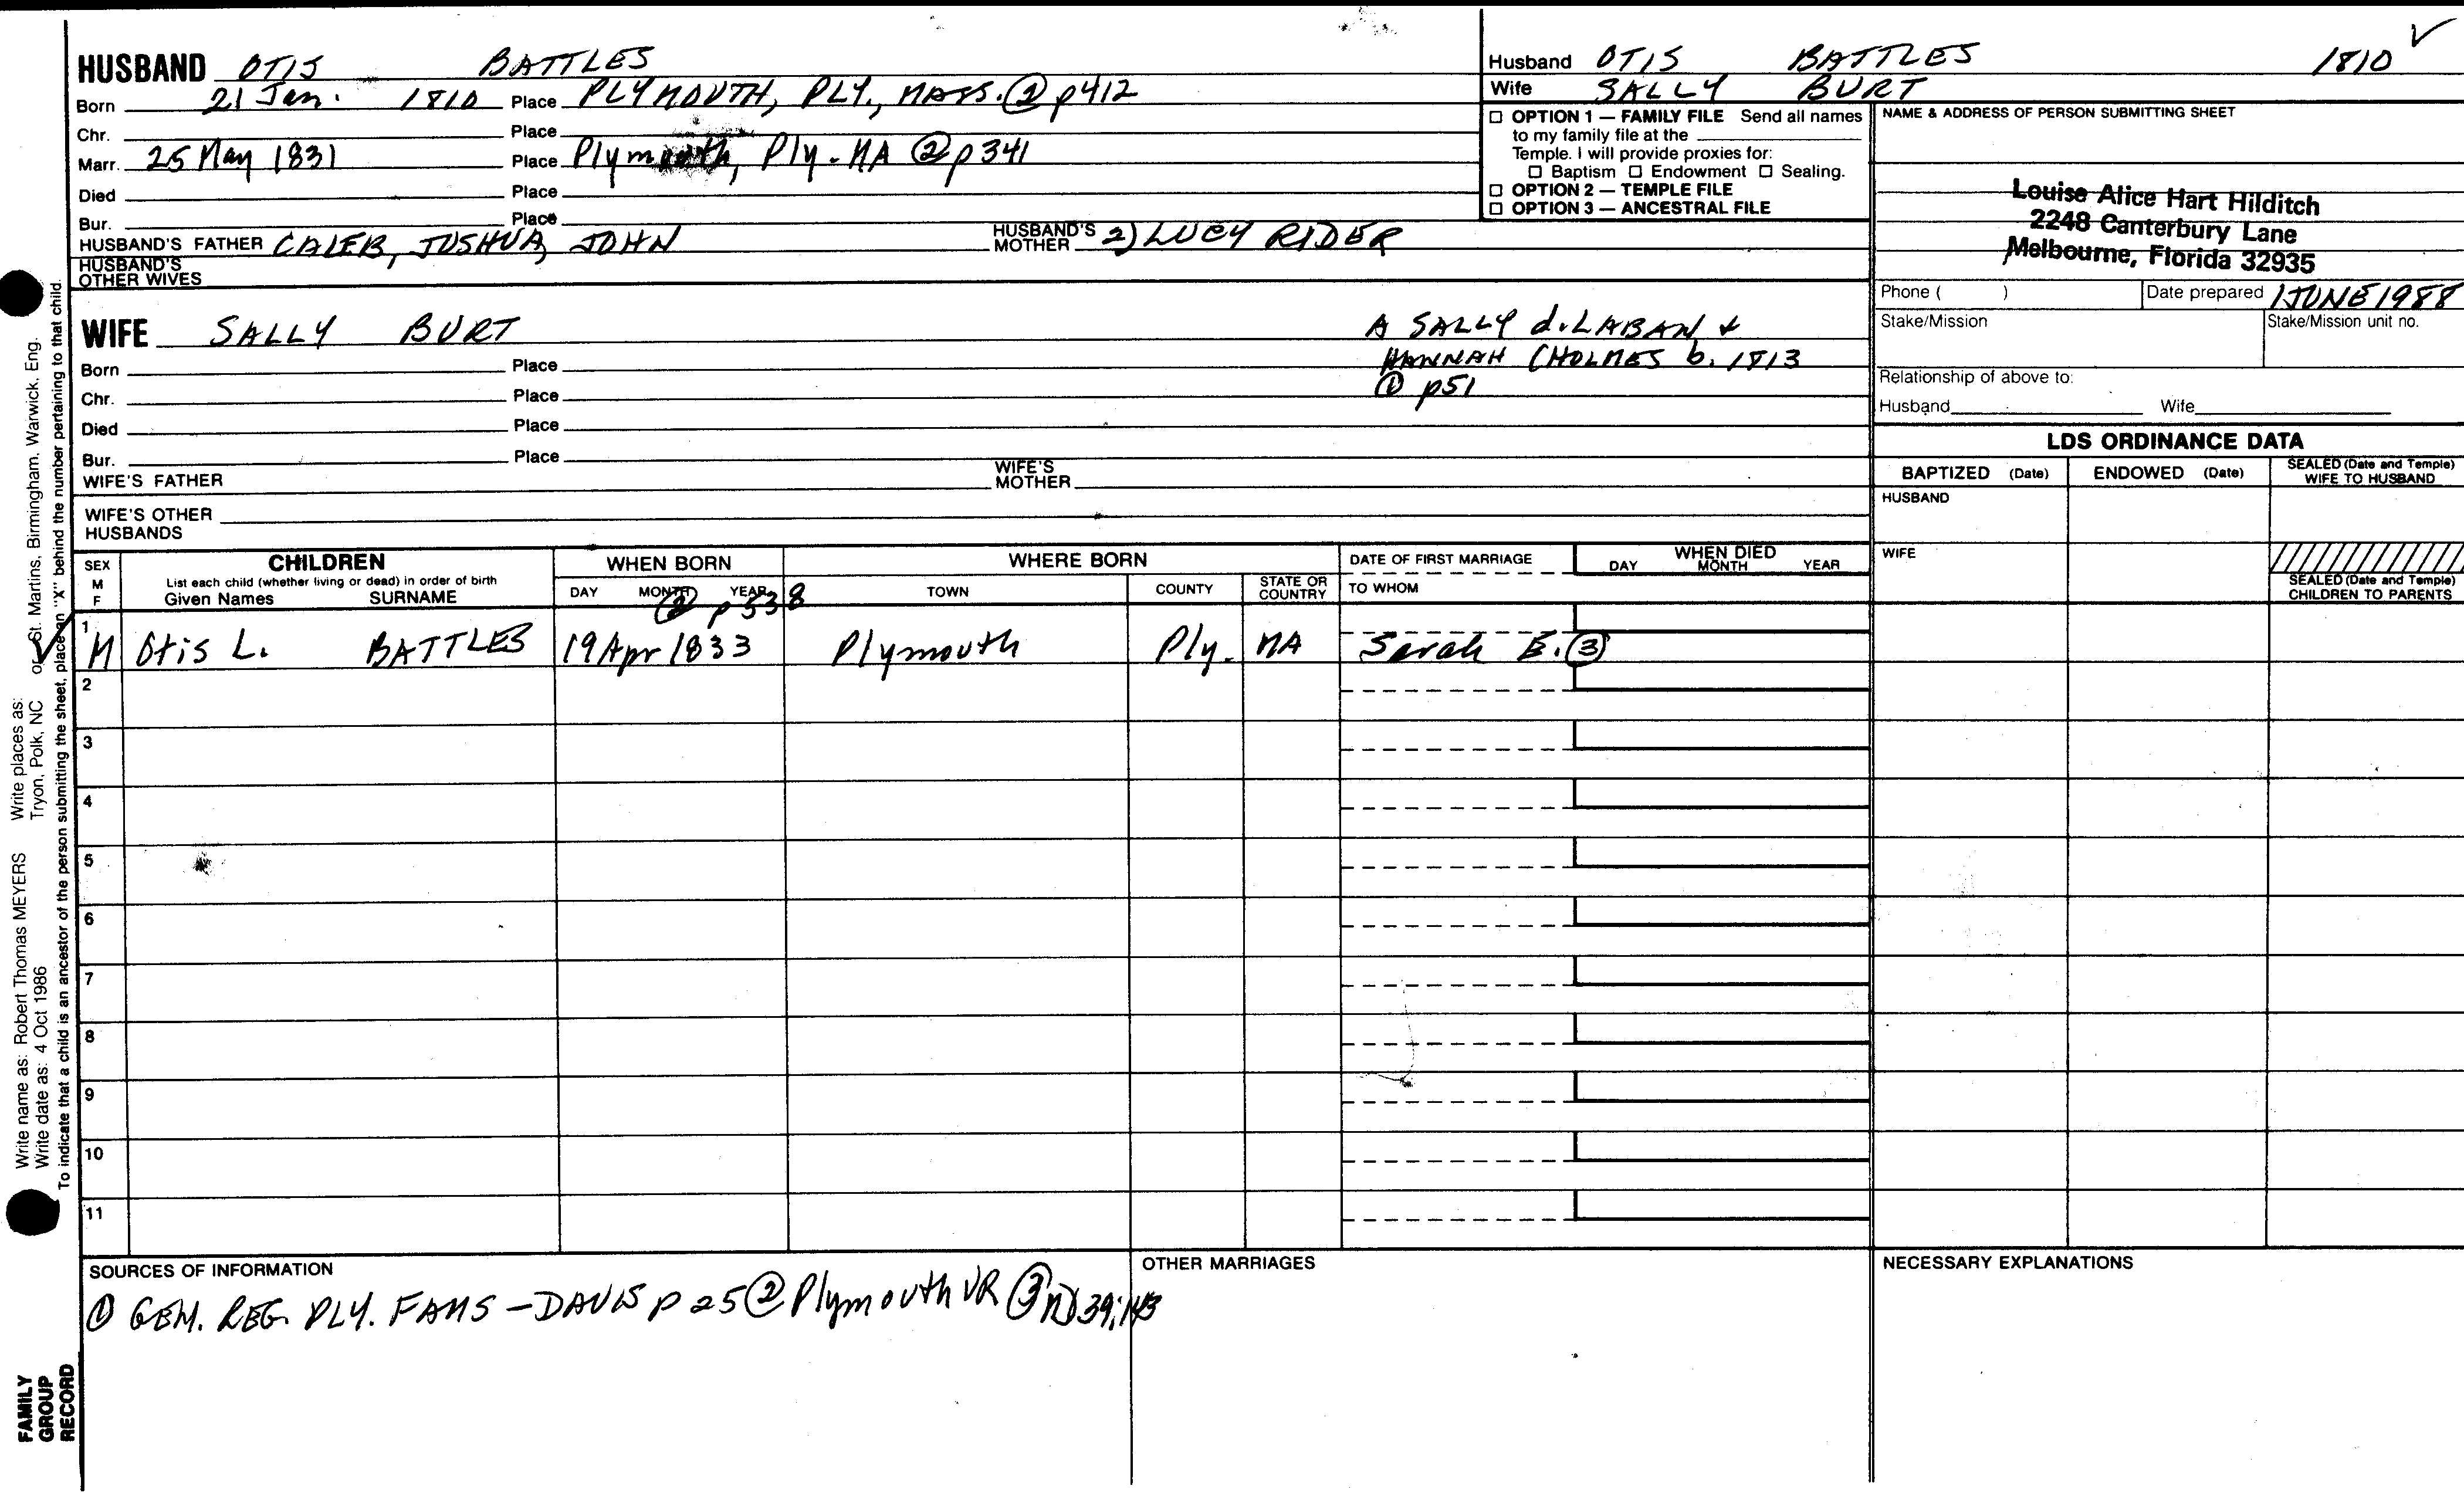 HUSBAND OTIS BATTLES
Born 21 Jan. 1810 Place PLYMOUTH, PLY., MASS. ② p412
Chr. Place
Marr. 25 May 1831 Place Plymouth, Ply. MA ② p341
Died Place
Bur. Place
HUSBAND'S FATHER CALEB, JOSHUA, JOHN HUSBAND'S MOTHER 2) LUCY RIDER
HUSBAND'S
OTHER WIVES
Husband OTIS BATTLES 1810 ✓
Wife SALLY BURT
□ OPTION 1 — FAMILY FILE Send all names
to my family file at the
Temple. I will provide proxies for:
□ Baptism □ Endowment □ Sealing.
□ OPTION 2 — TEMPLE FILE
□ OPTION 3 — ANCESTRAL FILE
NAME & ADDRESS OF PERSON SUBMITTING SHEET
Louise Alice Hart Hilditch
2248 Canterbury Lane
Melbourne, Florida 32935
Phone ( ) Date prepared 1 JUNE 1988
Stake/Mission Stake/Mission unit no.
Relationship of above to:
Husband Wife
WIFE SALLY BURT
A SALLY d. LABAN &
HANNAH (HOLMES b. 1813
① p51
Born Place
Chr. Place
Died Place
Bur. Place
WIFE'S FATHER WIFE'S MOTHER
WIFE'S OTHER
HUSBANDS
LDS ORDINANCE DATA
BAPTIZED (Date) ENDOWED (Date) SEALED (Date and Temple) WIFE TO HUSBAND
HUSBAND
WIFE
SEALED (Date and Temple)
CHILDREN TO PARENTS
SEX M F
CHILDREN
List each child (whether living or dead) in order of birth
Given Names SURNAME
WHEN BORN
DAY MONTH YEAR
② p 538
WHERE BORN
TOWN COUNTY STATE OR COUNTRY
DATE OF FIRST MARRIAGE
TO WHOM
WHEN DIED
DAY MONTH YEAR
1
✓ M Otis L. BATTLES 19 Apr 1833 Plymouth Ply. MA Sarah E. ③
2
3
4
5
6
7
8
9
10
11
SOURCES OF INFORMATION
① GEN. REG. PLY. FAMS – DAVIS p 25 ② Plymouth VR ③ 39:143
OTHER MARRIAGES
NECESSARY EXPLANATIONS
Write name as: Robert Thomas MEYERS Write places as:
Write date as: 4 Oct 1986 Tryon, Polk, NC or St. Martins, Birmingham, Warwick, Eng.
To indicate that a child is an ancestor of the person submitting the sheet, place an "X" behind the number pertaining to that child.
FAMILY
GROUP
RECORD